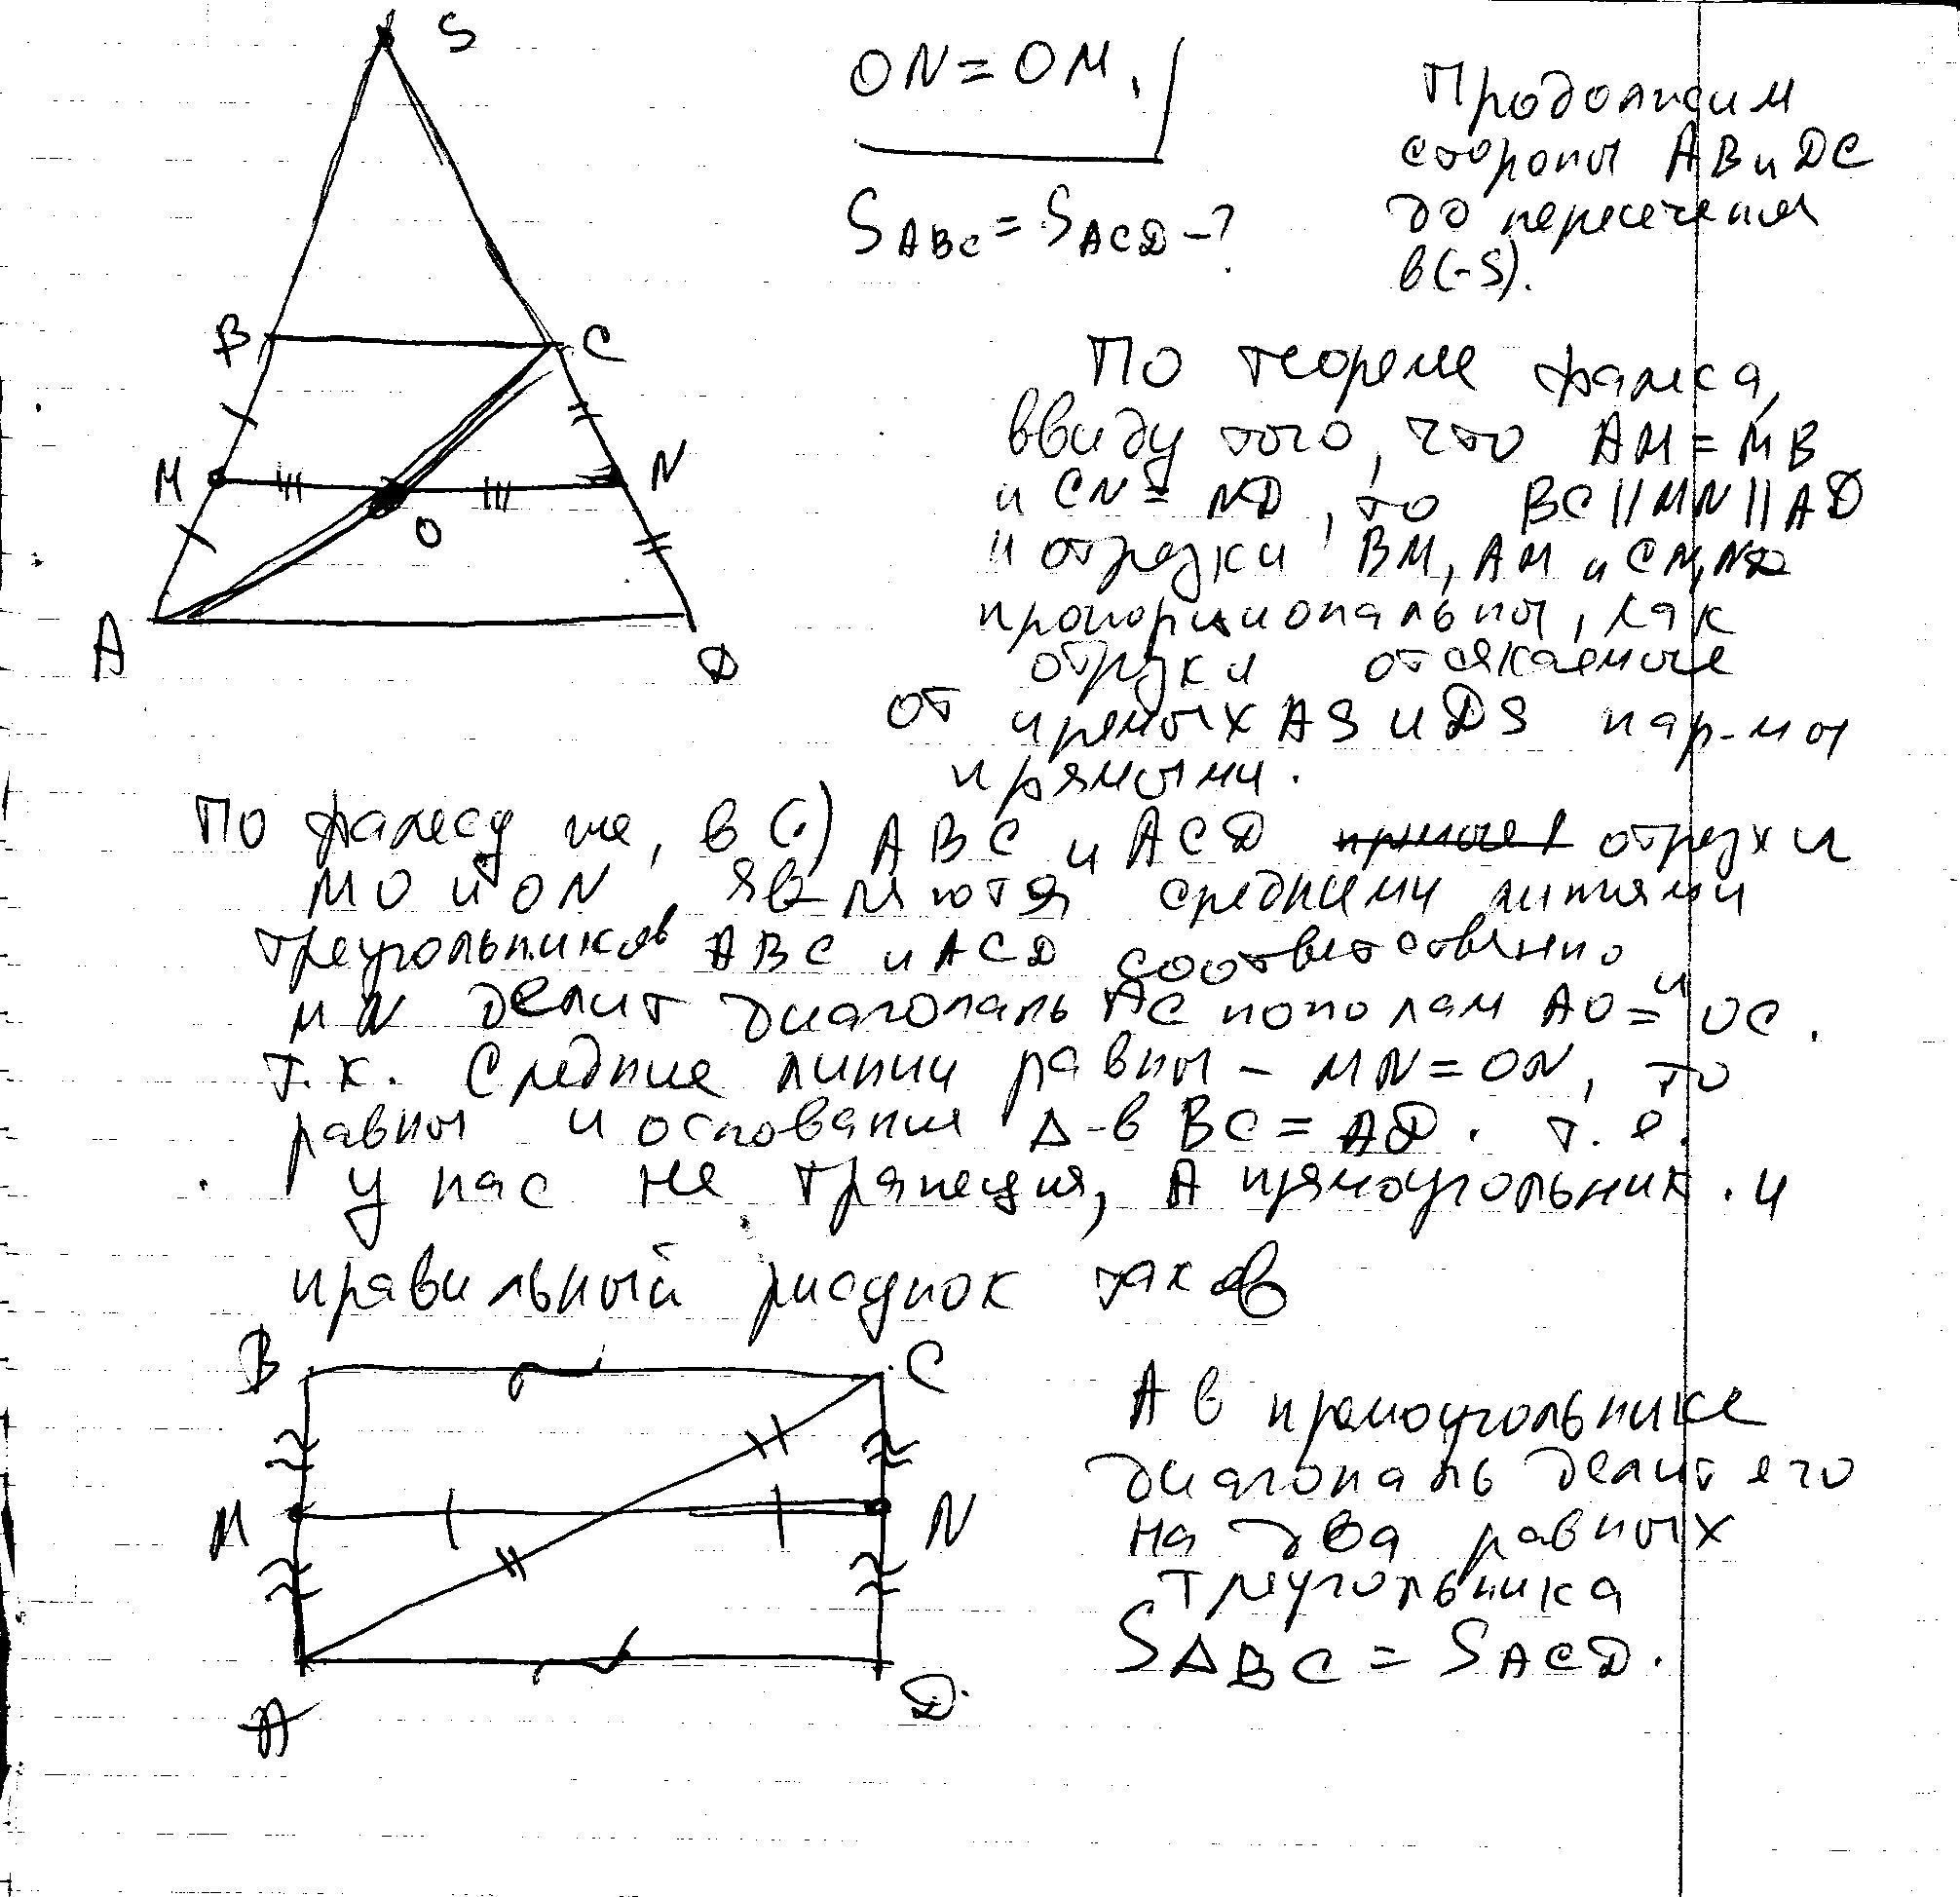 S
ON = OM,
S ABC = S ACD - ?
Продолжим
стороны AB и DC
до пересечения
в (- S).
B
C
M
N
O
A
D
По теореме фалеса,
ввиду того, что AM = MB
и CN = ND, то BC || MN || AD
и отрезки BM, AM и CN, ND
пропорциональны, как
отрезки отсекаемые
от прямых AS и DS пар-мы
прямыми.
По фалесу же, в (.) ABC и ACD отрезки
MO и ON являются средними линиями
треугольников ABC и ACD соответственно и
MN делит диагональ AC пополам AO = OC.
т.к. Средние линии равны - MN = ON, то
равны и основания Δ-в BC = AD. т.е.
у нас не трапеция, А прямоугольник. и
правильный рисунок таков
B
C
M
N
A
D
А в прямоугольнике
диагональ делит его
на два равных
треугольника
S ABC = S ACD.